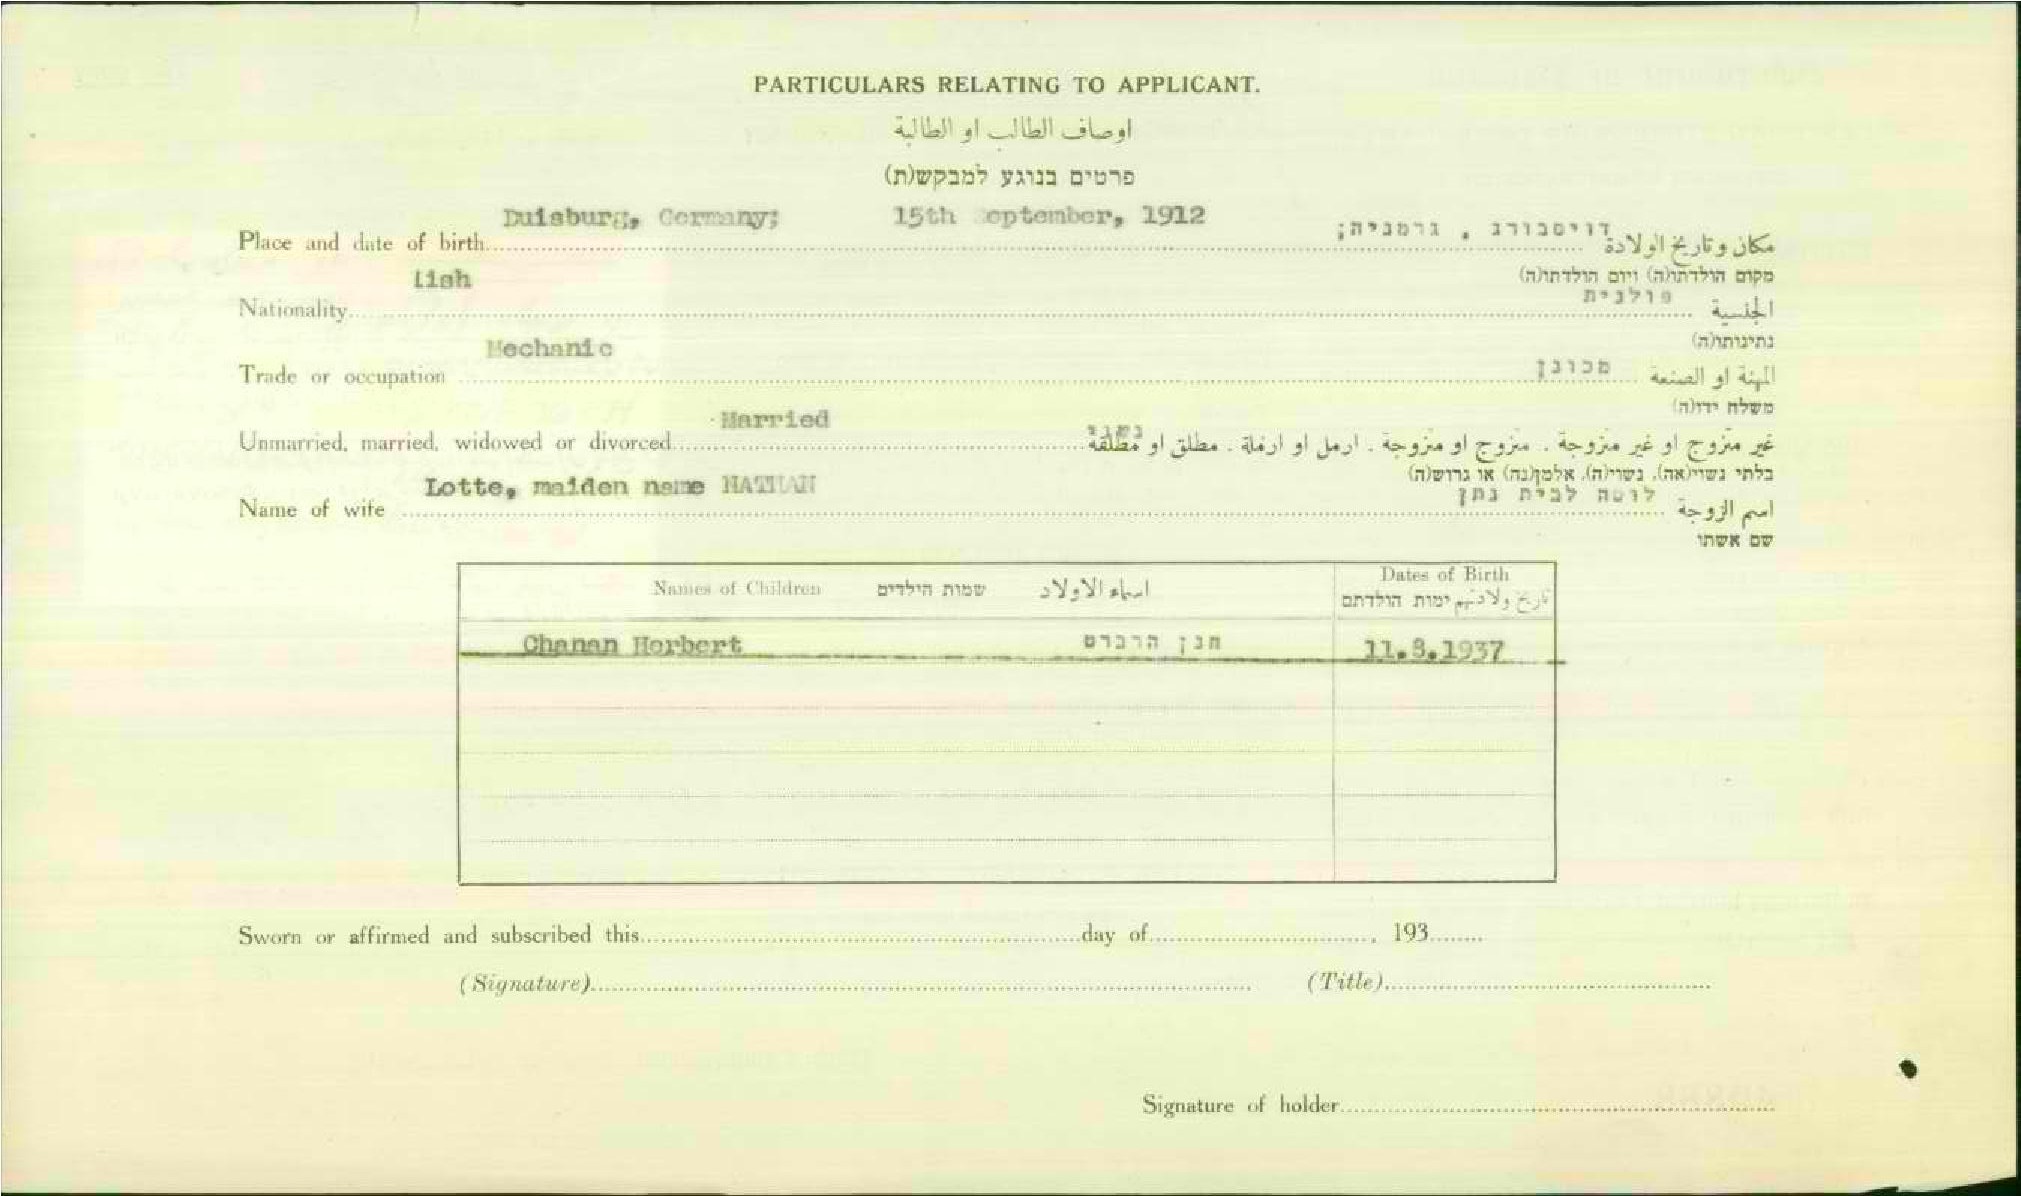 PARTICULARS RELATING TO APPLICANT.
اوصاف الطالب او الطالبة
פרטים בנוגע למבקש(ת)
Duisburg, Germany; 15th September, 1912 דויסבורג , גרמניה;
Place and date of birth مكان وتاريخ الولادة
מקום הולדתו(ה) ויום הולדתו(ה)
lish פולנית
Nationality الجنسية
נתינותו(ה)
Mechanic מכונן
Trade or occupation المهنة او الصنعة
משלח ידו(ה)
Married נשוי
Unmarried, married, widowed or divorced غير متزوج او غير متزوجة . متزوج او متزوجة . ارمل او ارملة . مطلق او مطلقة
בלתי נשוי(אה), נשוי(ה), אלמן(נה) או גרוש(ה)
Lotte, maiden name NATHAN לוטה לבית נתן
Name of wife اسم الزوجة
שם אשתו
Names of Children שמות הילדים اسماء الاولاد Dates of Birth
ימות הולדתם تاريخ ولادتهم
Chanan Herbert חנן הרברט 11.8.1937
Sworn or affirmed and subscribed this day of , 193
(Signature) (Title)
Signature of holder